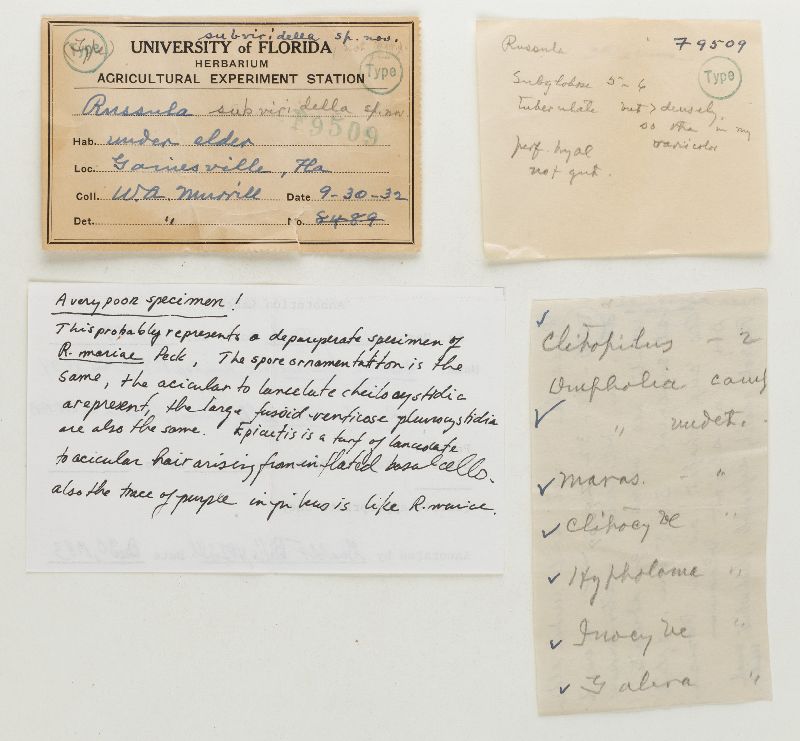 subviridella sp. nov.
Type
UNIVERSITY of FLORIDA
HERBARIUM
AGRICULTURAL EXPERIMENT STATION
Type
Russula subviridella sp. nov
F9509
Hab. under elder
Loc. Gainesville, Fla
Coll. W.A. Murrill Date 9-30-32
Det. " No. 8489
Russula F9509
Type
Subglobose 5-6
tuberculate not densely,
so than in my
variicolor
perf. hyal
not gut.
A very poor specimen!
This probably represents a depauperate specimen of
R. mariae Peck, The spore ornamentation is the
same, the acicular to lancelate cheilocystidia
are present, the large fusoid-venticose pleurocystidia
are also the same. Epicutis is a turf of lanceolate
to acicular hair arising from inflated basal cells.
also the trace of purple in pileus is like R. mariae.
Clitopilus - 2
Omphalia camp
" undet.
Maras. - "
Clitocybe "
Hypholoma "
Inocybe "
Galera "